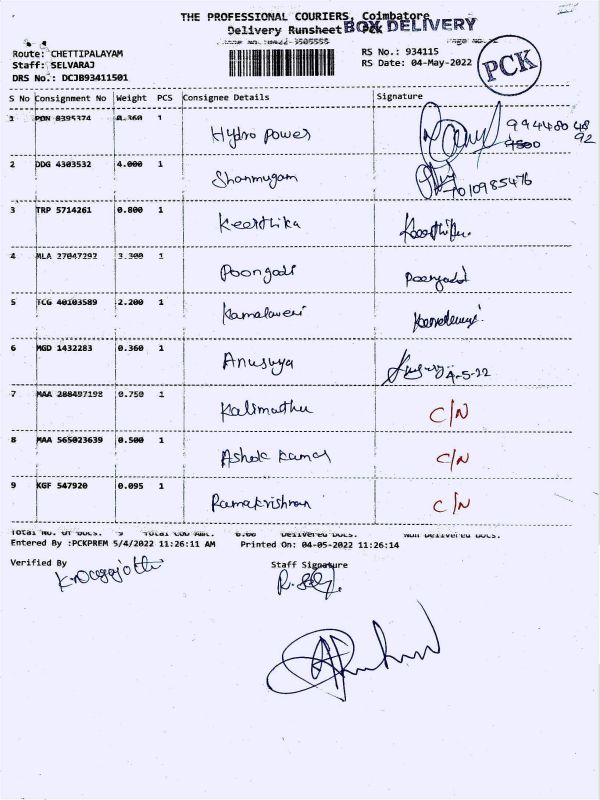 THE PROFESSIONAL COURIERS, Coimbatore
Delivery Runsheet PCK BOX DELIVERY
Route: CHETTIPALAYAM RS No.: 934115
Staff: SELVARAJ RS Date: 04-May-2022 PCK
DRS No.: DCJB93411501
S No Consignment No Weight PCS Consignee Details Signature
1 PON 8395374 0.360 1 Hydro power 994480 48
9500 92
2 DDG 4303532 4.000 1 Shanmugam 7010985476
3 TRP 5714261 0.800 1 Keerthika Keerthika
4 MLA 27047292 3.300 1 Poongodi Poongodi
5 TCG 40103589 2.200 1 Kamalaveni
6 MGD 1432283 0.360 1 Anusuya 4-5-22
7 MAA 288497198 0.750 1 Kalimuthu C/N
8 MAA 565023639 0.500 1 Ashok kumar C/N
9 KGF 547920 0.095 1 Ramakrishnan C/N
Total No. Of Docs. 9 Total COD Amt. 0.00 Delivered Docs. Non Delivered Docs.
Entered By :PCKPREM 5/4/2022 11:26:11 AM Printed On: 04-05-2022 11:26:14
Verified By Staff Signature